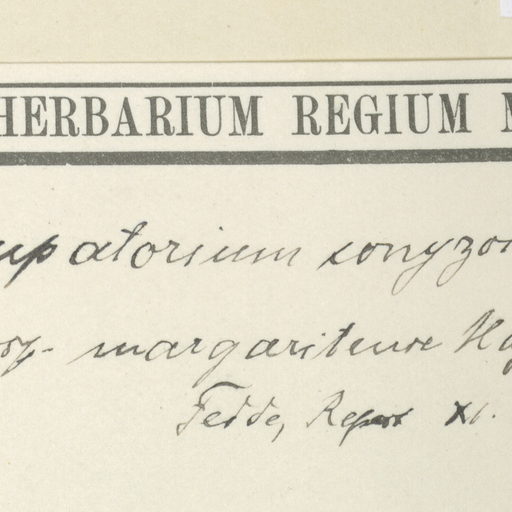 HERBARIUM REGIUM M
upatorium conyzoi
margaritense H
Fedde, Repert XI.